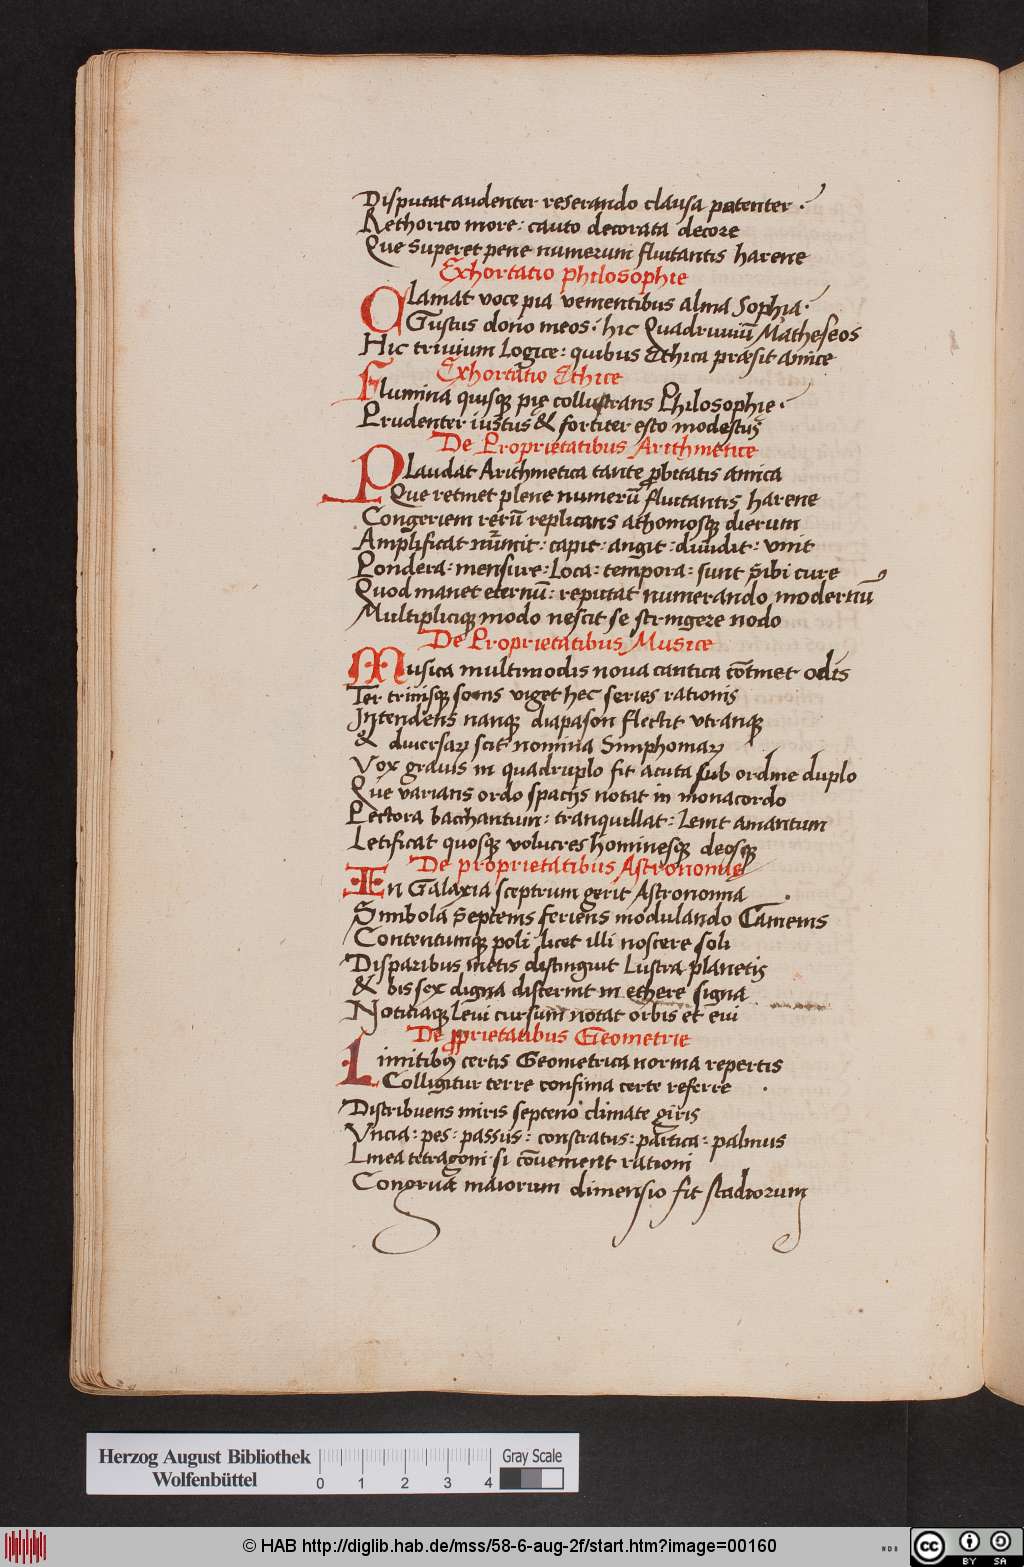 Disputat audenter reserando clausa patenter ·
Rethorico more : cauto decorata decore
Que superet pene numerum fluitantis harene
Exhortatio philosophie
Clamat voce pia vementibus alma Sophia ·
Gustus dono meos : hic Quadruuiũ Matheseos
Hic triuium Logice : quibus Ethica præsit amice
Exhortatio Ethice
Flumina quisqꝫ pie collustrans Philosophie ·
Prudenter iustus & fortiter esto modestus
De Proprietatibus Arithmetice
Plaudat Arithmetica tante ꝓbitatis amica
Que retinet plene numerũ fluitantis harene
Congeriem rerũ replicans athomosqꝫ dierum
Amplificat : capit : angit : diuidit : vnit
Pondera : mensure : Loca : tempora : sunt sibi cure
Quod manet eternũ : reputat numerando modernũ
Multipliciqꝫ modo nescit se stringere nodo
De Proprietatibus Musice
Musica multimodis noua cantica cõtinet odis
Ter trinisqꝫ sonis viget hec series rationis
Intendens nanqꝫ diapason flectit vtranqꝫ
& diuersaꝝ scit nomina Simphoniaꝝ
Vox grauis in quadruplo fit acuta sub ordine duplo
Que varians ordo spacijs notat in monacordo
Pectora bacchantum : tranquillat : Lenit amantum
Letificat quosqꝫ volucres hominesqꝫ deosqꝫ
De proprietatibus Astronomie
En Galaxia sceptrum gerit Astronomia
Simbola septenis feriens modulando Camenis
Contentumqꝫ poli licet illi noscere soli
Disparibus metis distinguit Lustra planetis
& bis sex digna discernit in ethere signa
Noticiaqꝫ Leui cursum notat orbis et eui
De ꝓprietatibus Geometrie
Limitibꝰ certis Geometrica norma repertis
Colligitur terre confinia certe referre
Distribuens miris septeno climate giris
Vncia : pes : passus : constratus : partica : palmus
Linea tetragoni si cõuenient rationi
Congrua maiorum dimensio fit stadiorum
Herzog August Bibliothek
Wolfenbüttel
0 1 2 3 4
Gray Scale
© HAB http://diglib.hab.de/mss/58-6-aug-2f/start.htm?image=00160
cc BY SA